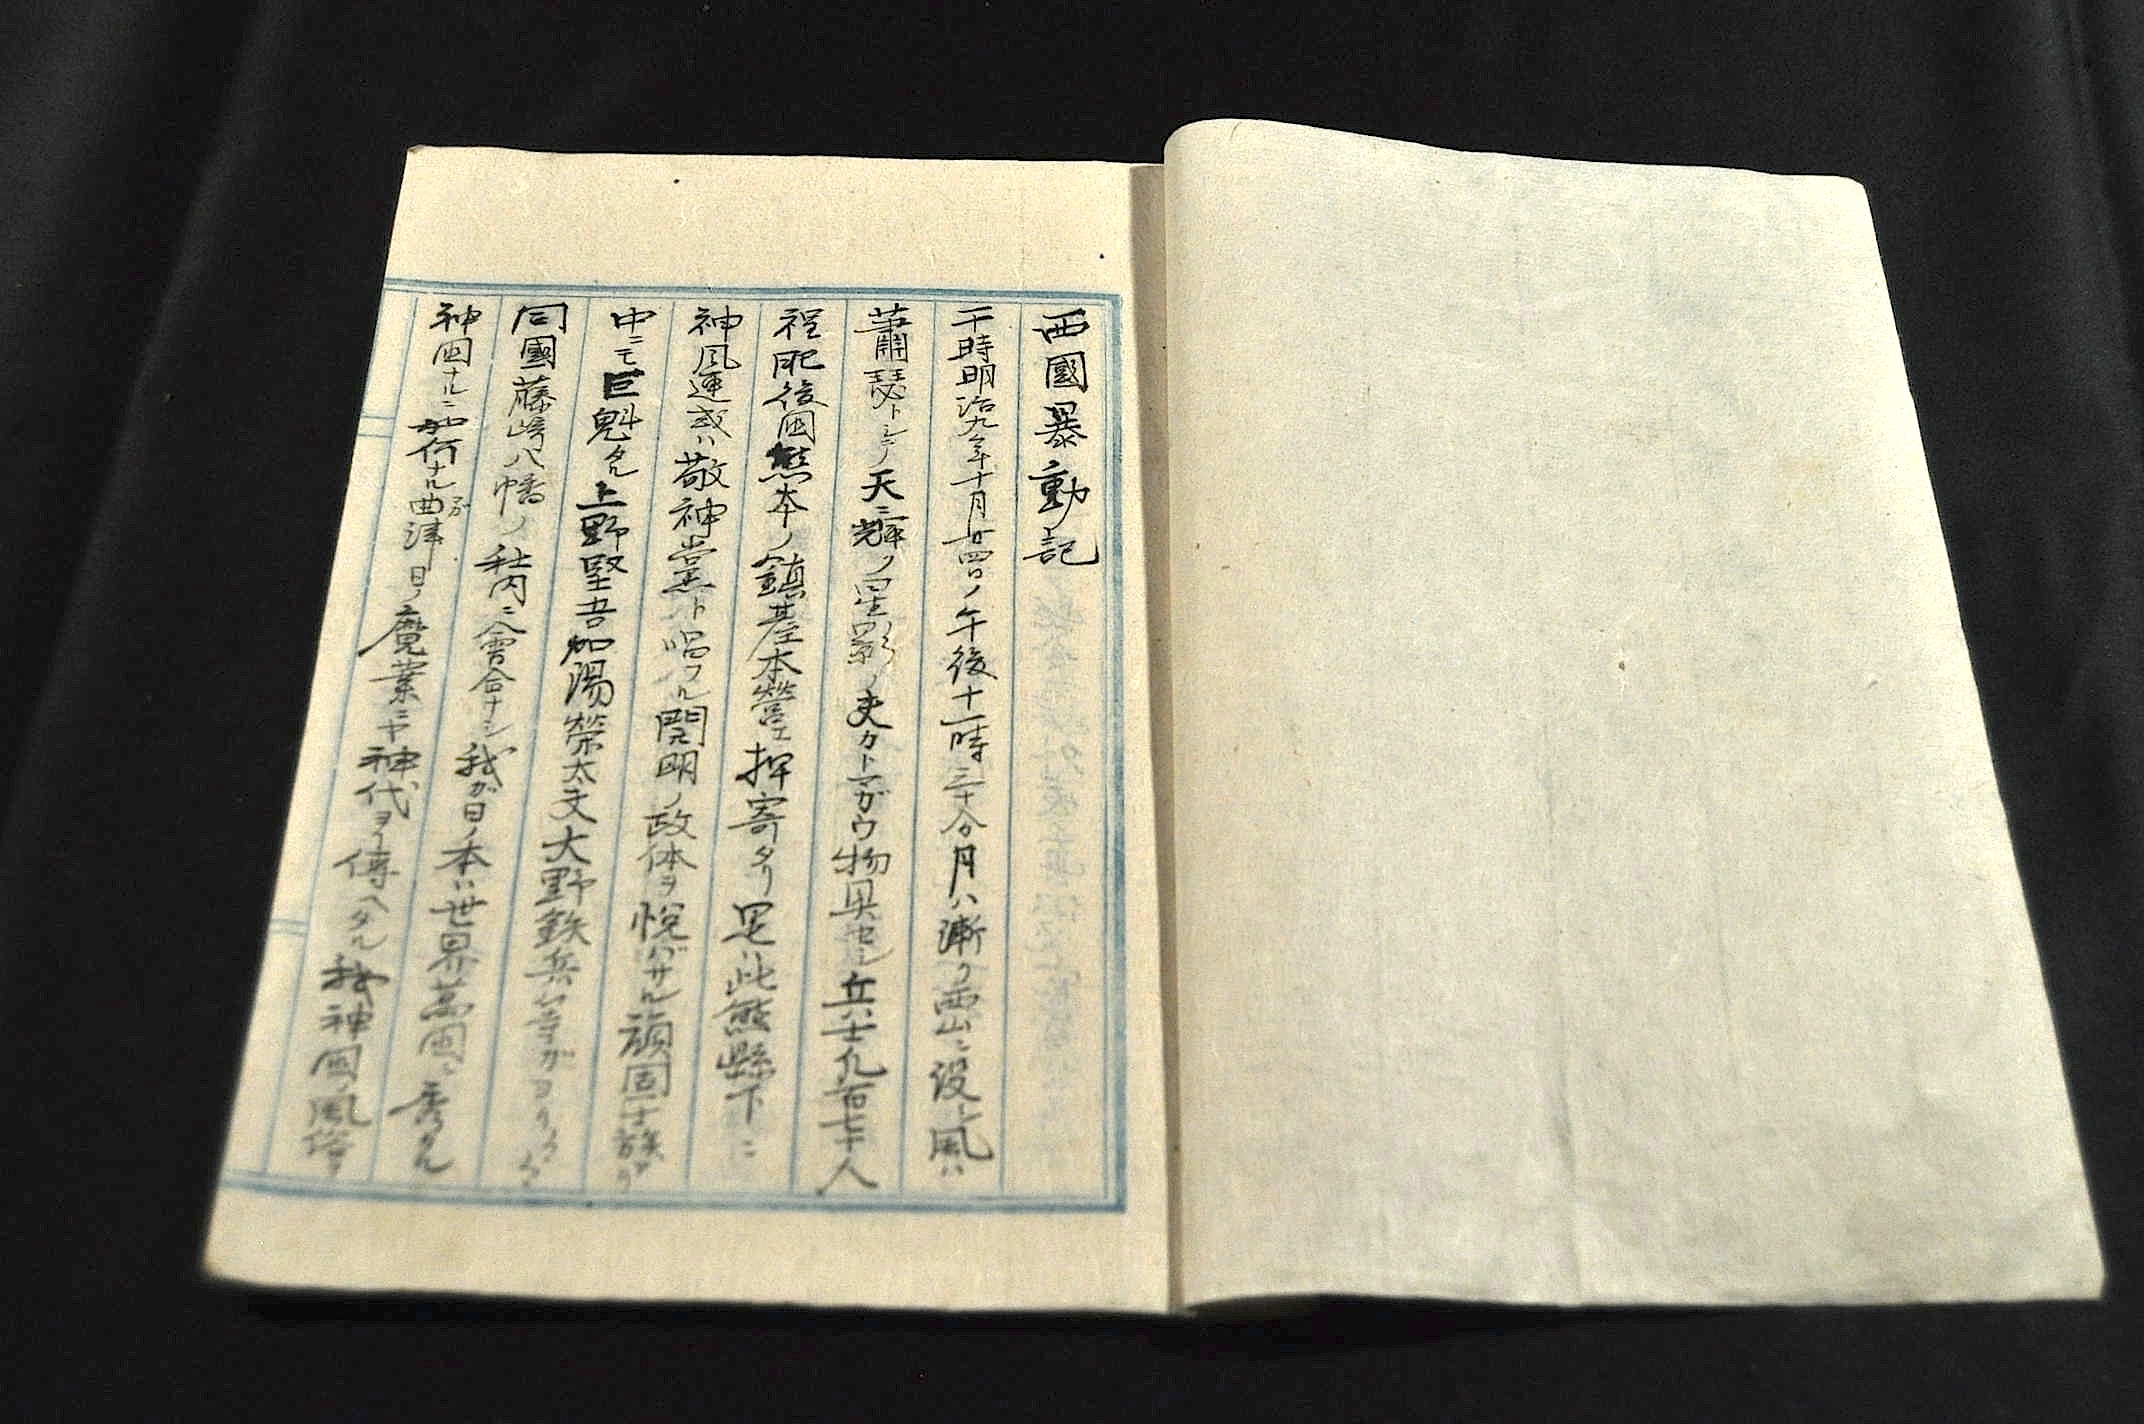 西國暴動記
于時明治九年十月廿四日ノ午後十一時三十分月ハ漸ク西山ニ没シ風ハ
蕭瑟トシテ天ニ輝ク星影ノ夫カトマガウ物具セシ兵士凡百七十人
程肥後国熊本ノ鎮基本営エ押寄タリ是ハ此熊縣下ニ
神風連或ハ敬神党ト唱フル開明ノ政体ヲ悦バザル頑固士族ガ
中ニモ巨魁タル上野堅吾加陽榮太文大野鉄兵等ガ
同國藤崎八幡ノ社内ニ會合ナシ我ガ日ノ本ハ世界萬国ニ秀タル
神国ナルニ如何ナル曲津日ノ魔業ニヤ神代ヨリ傳ヘタル我神国ノ風俗ヲ